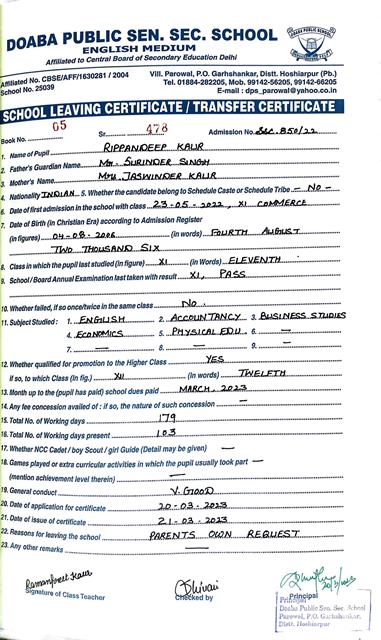 DOABA PUBLIC SEN. SEC. SCHOOL
ENGLISH MEDIUM
Affiliated to Central Board of Secondary Education Delhi
Affiliated No. CBSE/AFF/1630281 / 2004
School No. 25039
Vill. Parowal, P.O. Garhshankar, Distt. Hoshiarpur (Pb.)
Tel. 01884-282205, Mob. 99142-56205, 99142-66205
E-mail : dps_parowal@yahoo.co.in
SCHOOL LEAVING CERTIFICATE / TRANSFER CERTIFICATE
Book No. 05 Sr. 478 Admission No. Sec. 850/22
1. Name of Pupil RIPPANDEEP KAUR
2. Father's Guardian Name MR. SURINDER SINGH
3. Mother's Name MRS. JASWINDER KAUR
4. Nationality INDIAN 5. Whether the candidate belong to Schedule Caste or Schedule Tribe - NO -
6. Date of first admission in the school with class 23-05-2022, XI COMMERCE
7. Date of Birth (in Christian Era) according to Admission Register
(in figures) 04-08-2006 (in words) FOURTH AUGUST
TWO THOUSAND SIX
8. Class in which the pupil last studied (in figure) XI (in words) ELEVENTH
9. School / Board Annual Examination last taken with result XI, PASS
10. Whether failed, if so once/twice in the same class NO.
11. Subject Studied : 1. ENGLISH 2. ACCOUNTANCY 3. BUSINESS STUDIES
4. ECONOMICS 5. PHYSICAL EDU. 6. —
7. — 8. — 9. —
12. Whether qualified for promotion to the Higher Class YES
if so, to which Class (in fig.) XII (in words) TWELFTH
13. Month up to the (pupil has paid) school dues paid MARCH, 2023
14. Any fee concession availed of : if so, the nature of such concession —
15. Total No. of Working days 179
16. Total No. of Working days present 103
17. Whether NCC Cadet / boy Scout / girl Guide (Detail may be given) —
18. Games played or extra curricular activities in which the pupil usually took part —
(mention achievement level therein) —
19. General conduct V. GOOD
20. Date of application for certificate 20-03-2023
21. Date of issue of certificate 21-03-2023
22. Reasons for leaving the school PARENTS OWN REQUEST
23. Any other remarks —
Ramanpreet Kaur
Signature of Class Teacher
Shivani
Checked by
Principal
Principal
Doaba Public Sen. Sec. School
Parowal, P.O. Garhshankar,
Distt. Hoshiarpur